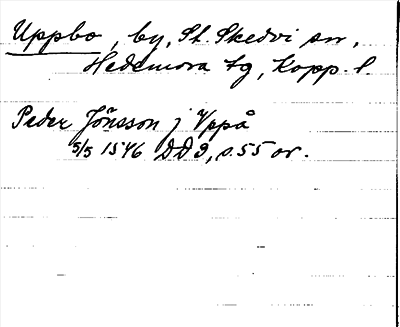 Uppbo, by, St. Skedvi sn,
Hedemora tg, Kopp. l.
Peder Jönsson j Vppå
5/5 1546 DD 9, s. 55 or.